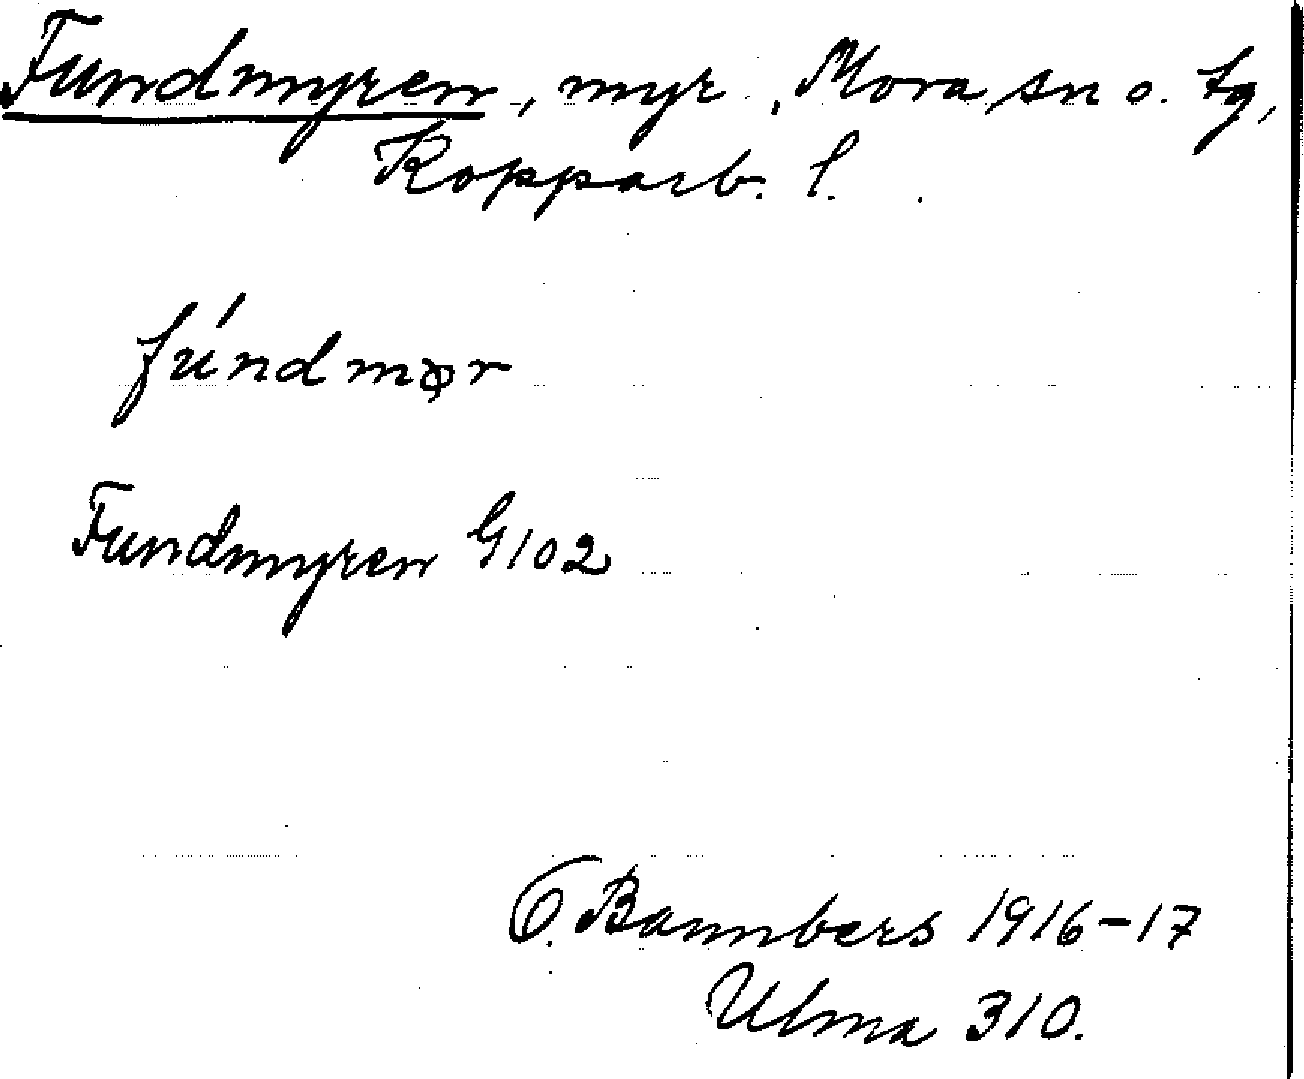 Fundmyren, myr, Mora sn o. tg,
Kopparb. l.
fúndmør
Fundmyren G102
O. Bannbers 1916-17
Ulma 310.